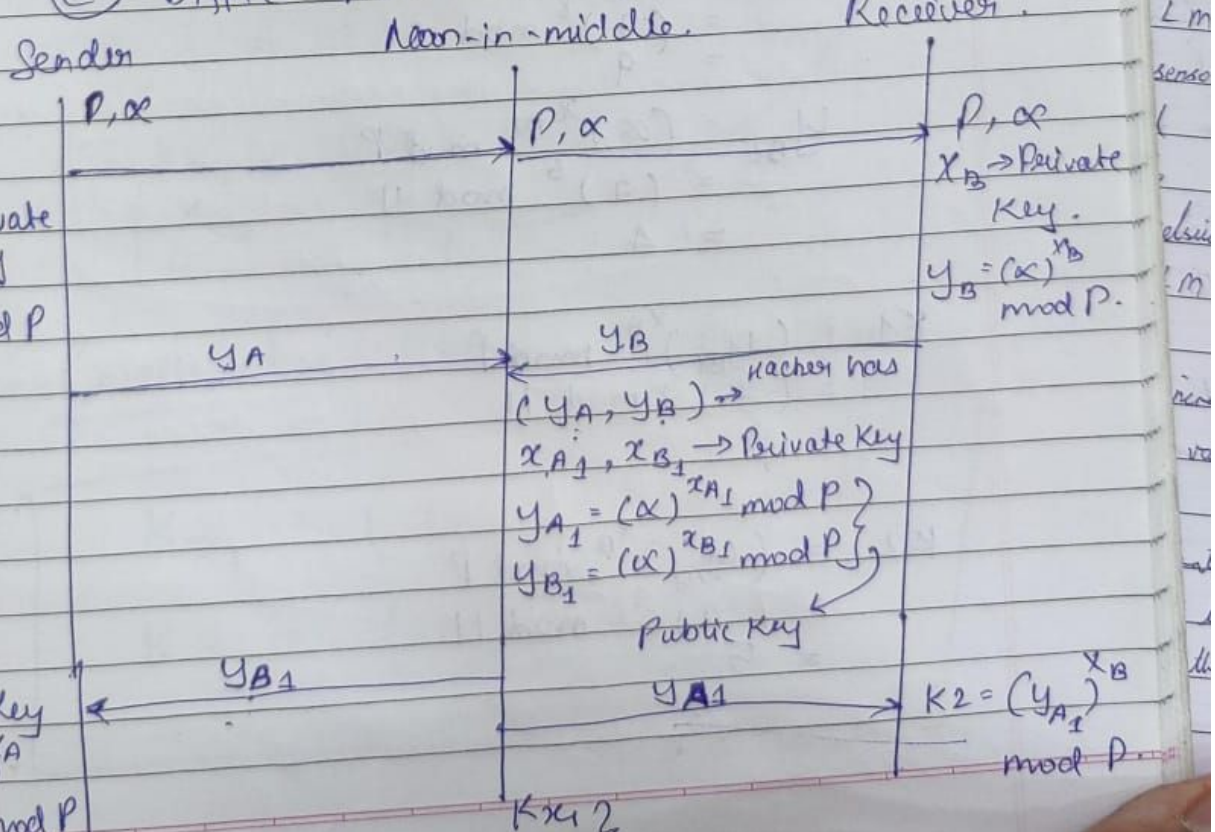 Sender
Mean-in-middle.
Receever.
P, α
P, α
P, α
X_B → Private
Key.
y_B = (α)^x_B
mod P.
vate
d P
y_A
y_B
Hacher has
(y_A, y_B) →
x_A1, x_B1 → Private Key
y_A1 = (α)^x_A1 mod P
y_B1 = (α)^x_B1 mod P
Public Key
y_B1
y_A1
K2 = (y_A1)^X_B
mod P.
key
A
mod P
senso